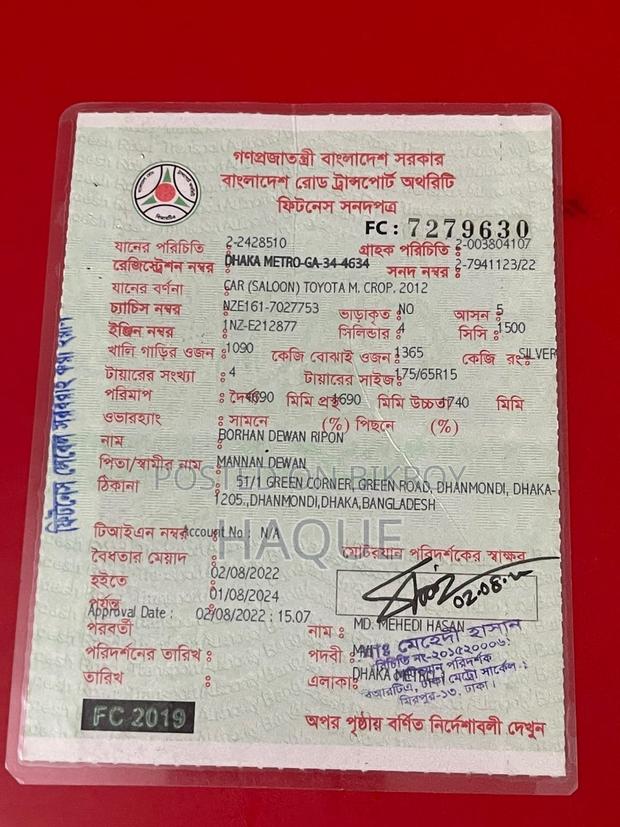 গণপ্রজাতন্ত্রী বাংলাদেশ সরকার
বাংলাদেশ রোড ট্রান্সপোর্ট অথরিটি
ফিটনেস সনদপত্র
FC : 7279630
যানের পরিচিতি : 2-2428510 গ্রাহক পরিচিতি : 2-003804107
রেজিস্ট্রেশন নম্বর : DHAKA METRO-GA-34-4634 সনদ নম্বর : 2-7941123/22
যানের বর্ণনা : CAR (SALOON) TOYOTA M. CROP. 2012
চ্যাচিস নম্বর : NZE161-7027753 ভাড়াকৃত : NO আসন : 5
ইঞ্জিন নম্বর : 1NZ-E212877 সিলিন্ডার : 4 সিসি : 1500
খালি গাড়ির ওজন : 1090 কেজি বোঝাই ওজন : 1365 কেজি রং : SILVER
টায়ারের সংখ্যা : 4 টায়ারের সাইজ : 175/65R15
পরিমাপ : দৈর্ঘ্য 4690 মিমি প্রস্থ 1690 মিমি উচ্চতা 1740 মিমি
ওভারহ্যাং : সামনে (%) পিছনে (%)
নাম : BORHAN DEWAN RIPON
পিতা/স্বামীর নাম : MANNAN DEWAN
ঠিকানা : 51/1 GREEN CORNER, GREEN ROAD, DHANMONDI, DHAKA-
1205.,DHANMONDI,DHAKA,BANGLADESH
POSTED ON BIKROY
HAQUE
টিআইএন নম্বর Account No : N/A
বৈধতার মেয়াদ : মোটরযান পরিদর্শকের স্বাক্ষর
হইতে : 02/08/2022
পর্যন্ত : 01/08/2024
02.08.22
Approval Date : 02/08/2022 : 15.07
পরবর্তী নাম : MD. MEHEDI HASAN
পরিদর্শনের তারিখ : পদবী :
তারিখ : এলাকা : DHAKA METRO
মোঃ মেহেদী হাসান
মোটরযান পরিদর্শক
বিআরটিএ, ঢাকা মেট্রো সার্কেল-১
মিরপুর-১৩, ঢাকা।
FC 2019
অপর পৃষ্ঠায় বর্ণিত নির্দেশাবলী দেখুন